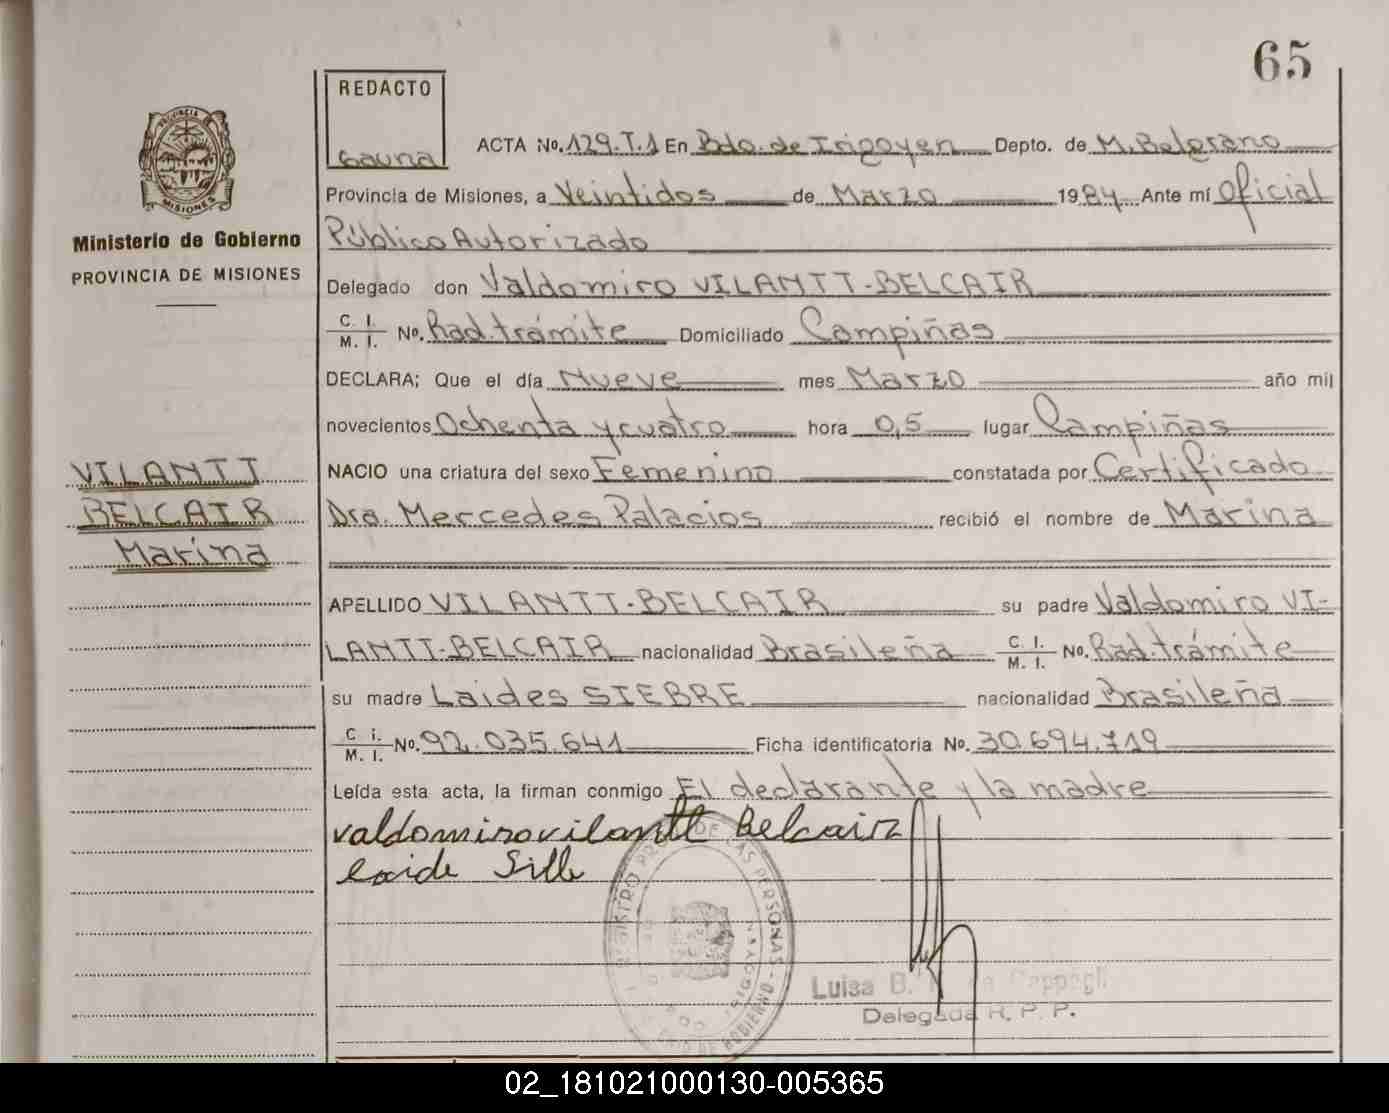 65
REDACTO
Gauna
PROVINCIA DE
MISIONES
Ministerio de Gobierno
PROVINCIA DE MISIONES
ACTA No. 129.T.1 En Bdo. de Irigoyen Depto. de M. Belgrano
Provincia de Misiones, a Veintidos de Marzo 1984 Ante mí Oficial
Público Autorizado
Delegado don Valdomiro VILANTT-BELCAIR
C. I. M. I. No. Rad. trámite Domiciliado Campiñas
DECLARA; Que el día Nueve mes Marzo año mil
novecientos Ochenta y cuatro hora 0,5 lugar Campiñas
VILANTT
BELCAIR
Marina
NACIO una criatura del sexo Femenino constatada por Certificado
Dra. Mercedes Palacios recibió el nombre de Marina
APELLIDO VILANTT-BELCAIR su padre Valdomiro VI-
LANTT-BELCAIR nacionalidad Brasileña C. I. M. I. No. Rad. trámite
su madre Laides SIEBRE nacionalidad Brasileña
C. i. M. I. No. 92.035.641 Ficha identificatoria No. 30.694.719
Leída esta acta, la firman conmigo El declarante y la madre
valdomiro vilantt Belcair
REGISTRO DE LAS PERSONAS
Luisa B.
Delegada R. P. P.
02_181021000130-005365